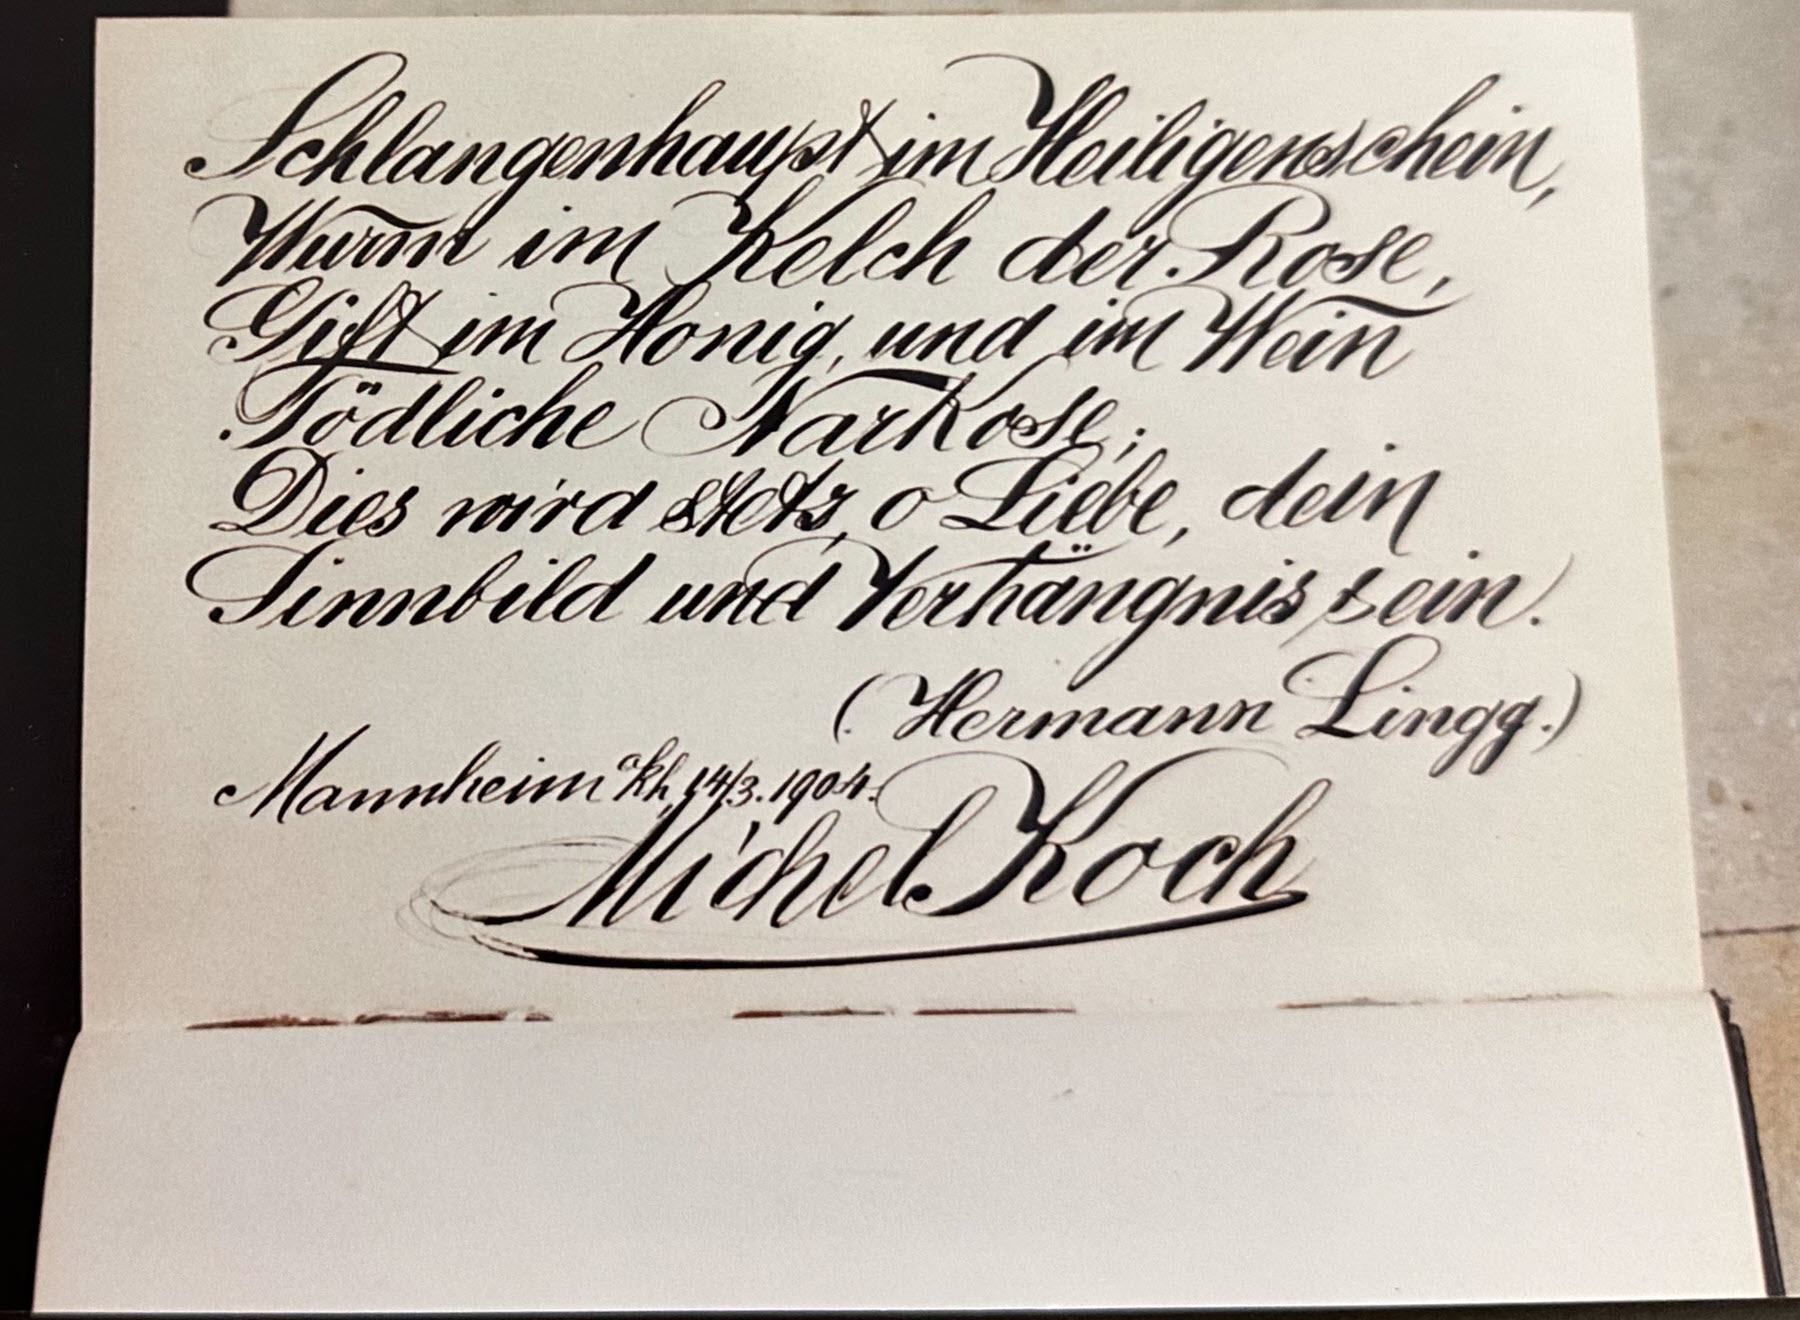 Schlangenhaupt im Heiligenschein,
Wurm im Kelch der Rose,
Gift im Honig, und im Wein
Tödliche Narkose;
Dies wird stets, o Liebe, dein
Sinnbild und Verhängnis sein.
(Hermann Lingg.)
Mannheim a/Rh, 14/3. 1904.
Michel Koch